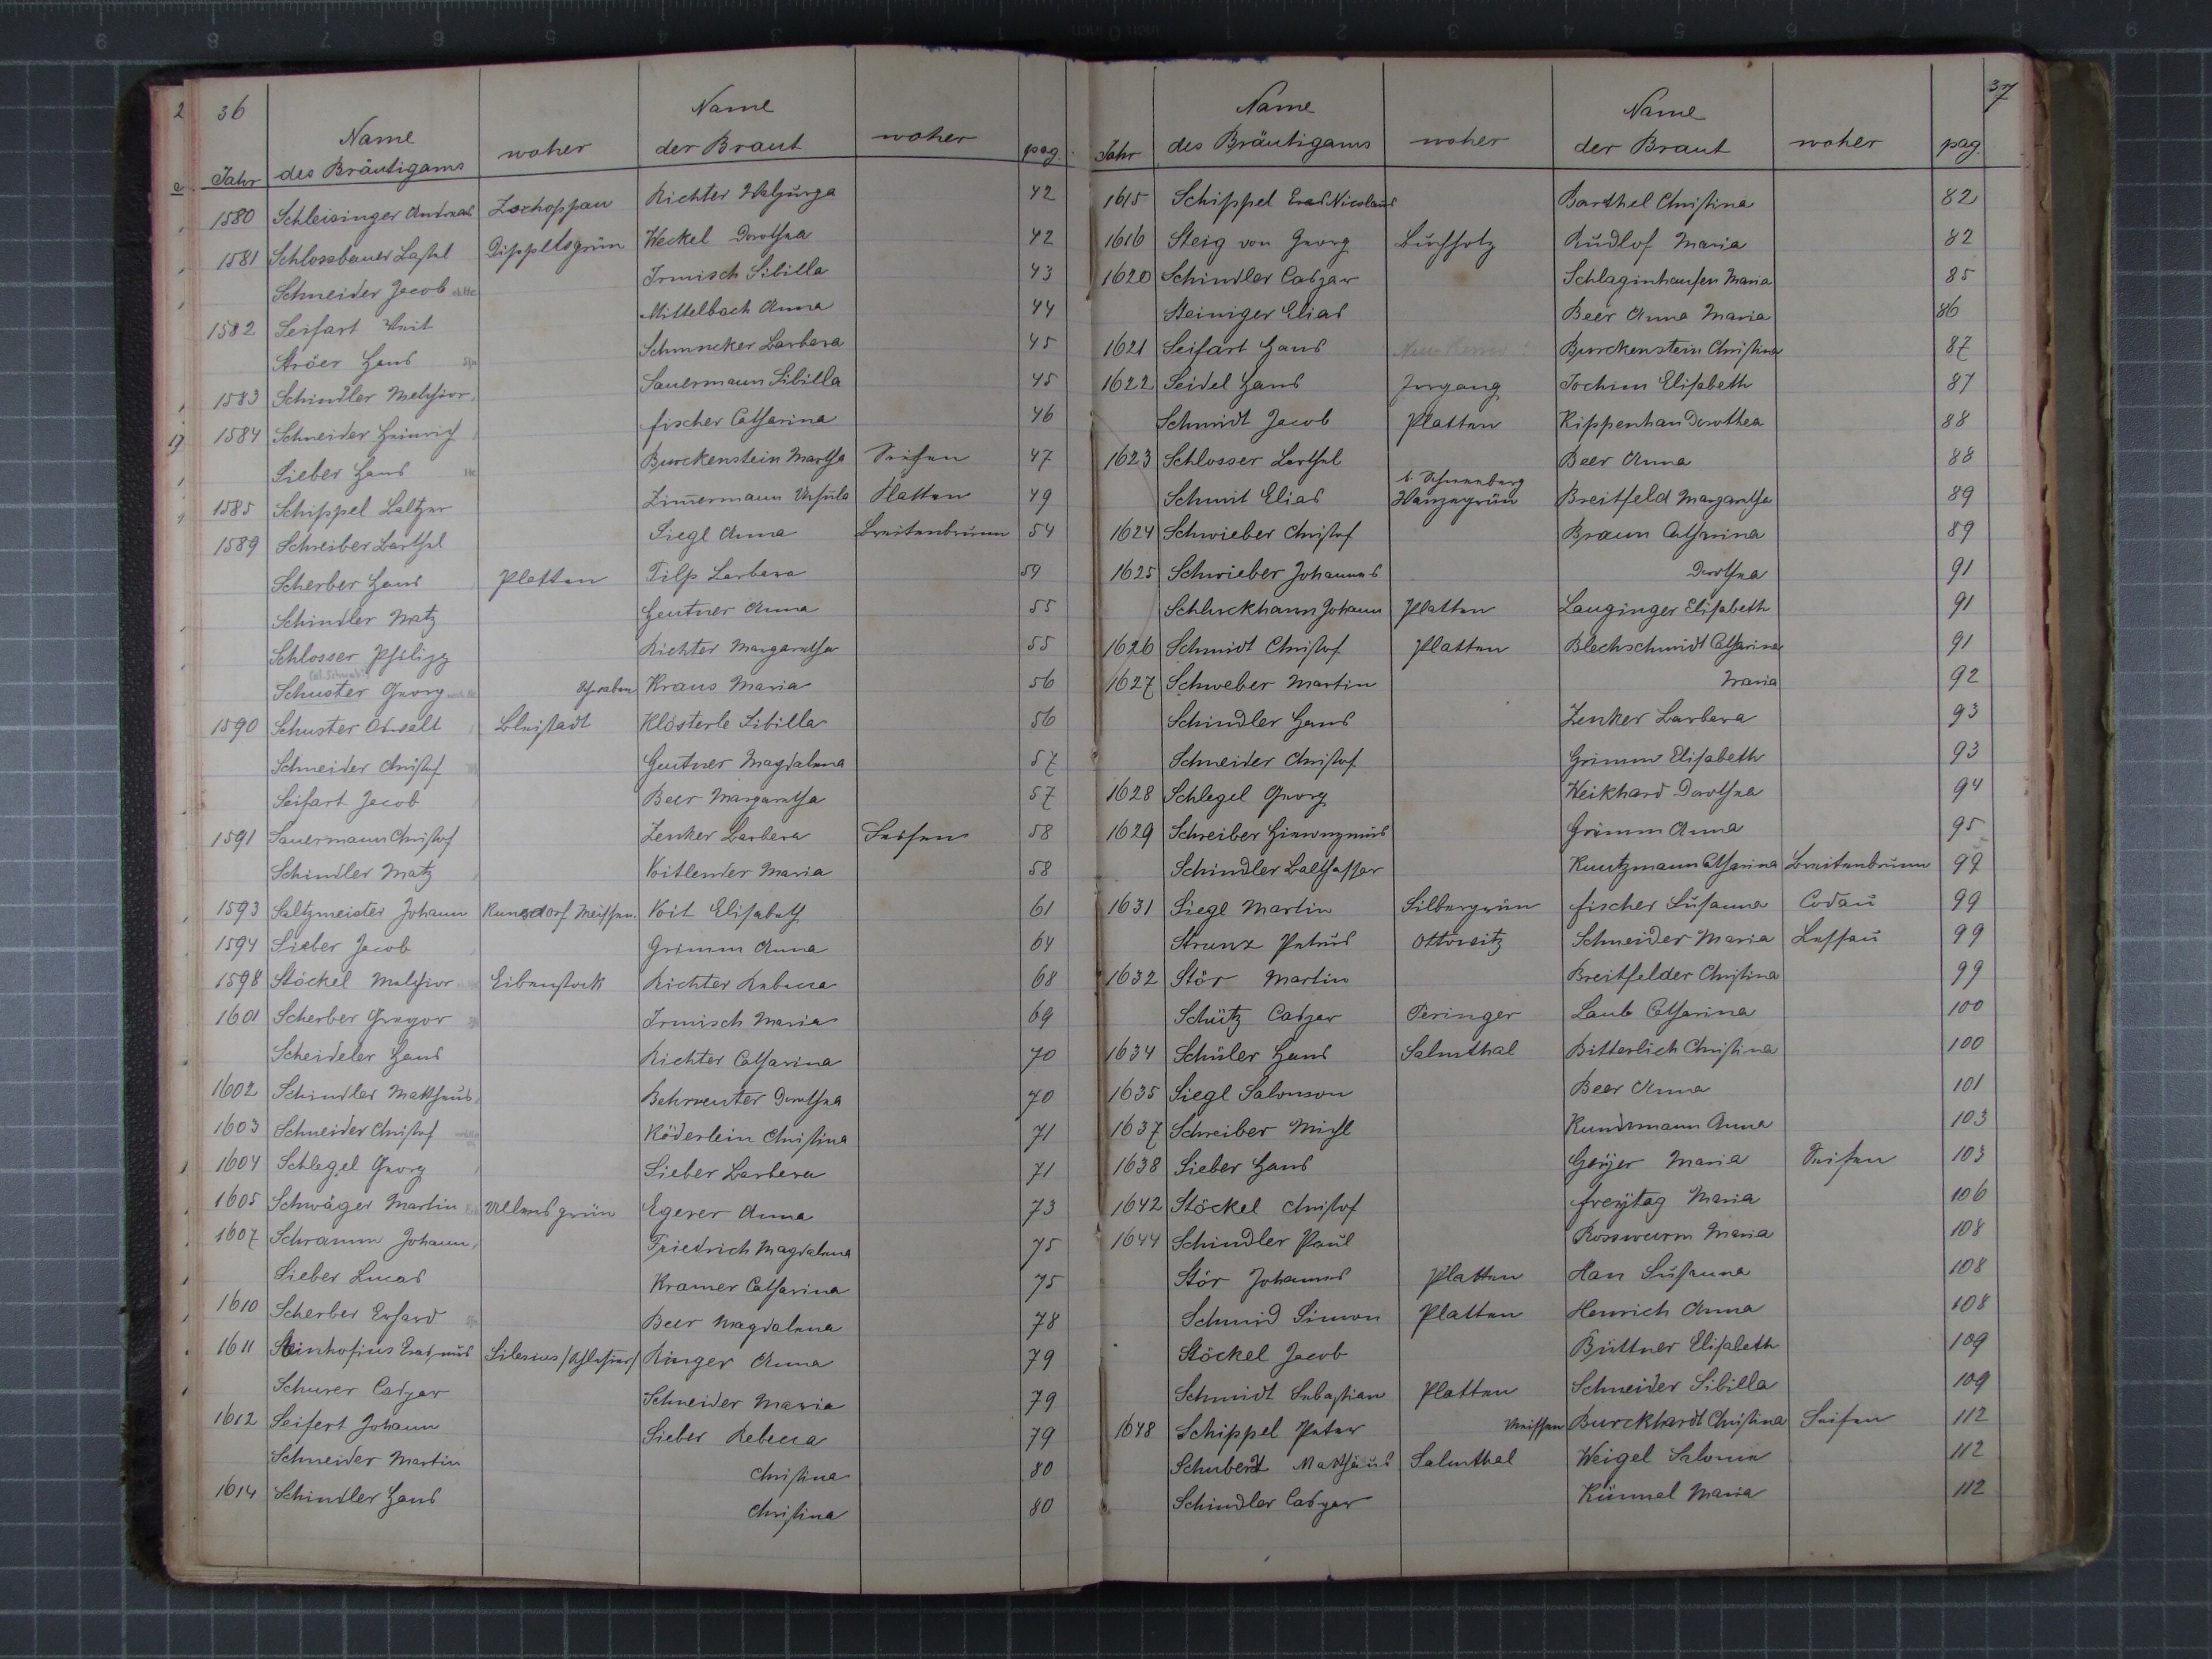 36
Jahr Name des Bräutigams woher Name der Braut woher pag.
1580 Schleisinger Andreas Zschoppau Richter Walpurga 42
1581 Schlossbauer Bastel Dippeltsgrün Weckel Dorothea 42
Schneider Jacob Irmisch Sibilla 43
1582 Seifart Veit Mittelbach Anna 44
Ströer Hans Schmucker Barbara 45
1583 Schindler Melchior Sauermann Sibilla 45
1584 Schneider Heinrich Fischer Catharina 46
Sieber Hans Burckenstein Martha Seifen 47
1585 Schippel Baltzer Zimmermann Ursula Platten 49
1589 Schreiber Barthel Siegl Anna Breitenbrunn 54
Scherber Hans Platten Tilp Barbara 54
Schindler Matz Gentner Anna 55
Schlosser Philipp Richter Margaretha 55
Schuster Georg Schwaben Kraus Maria 56
1590 Schuster Oswalt Bleistadt Klösterle Sibilla 56
Schneider Christof Gentner Magdalena 57
Seifart Jacob Beer Margaretha 57
1591 Sauermann Christof Zenker Barbara Seifen 58
Schindler Matz Voitlender Maria 58
1593 Saltzmeister Johann Meissen. Voit Elisabeth 61
1594 Sieber Jacob Grimm Anna 64
1598 Stöckel Melchior Eibenstock Richter Rebecca 68
1601 Scherber Gregor Irmisch Maria 69
Scheideler Hans Richter Catharina 70
1602 Schindler Matthäus Dorothea 70
1603 Schneider Christof Röderlein Christina 71
1604 Schlegel Georg Sieber Barbara 71
1605 Schwäger Martin Ullersgrün Egerer Anna 73
1607 Schramm Johann Friedrich Magdalena 75
Sieber Lucas Kramer Catharina 75
1610 Scherber Erhard Beer Magdalena 78
1611 Steinhofius Erasmus Silesius /Schlesier/ Ringer Anna 79
Schurer Caspar Schneider Maria 79
1612 Seifert Johann Sieber Rebecca 79
Schneider Martin Christina 80
1614 Schindler Hans Christina 80
37
Jahr Name des Bräutigams woher Name der Braut woher pag.
1615 Schippel Nicolaus Barthel Christina 82
1616 Steig von Georg Buchholz Rudlof Maria 82
1620 Schindler Caspar Schlaginhaufen Maria 85
Steiniger Elias Beer Anna Maria 86
1621 Seifart Hans Burckenstein Christina 87
1622 Seidel Hans Irrgang Jochim Elisabeth 87
Schmidt Jacob Platten Rippenhan Dorothea 88
1623 Schlosser Barthel Beer Anna 88
Schmit Elias b. Schneeberg Breitfeld Margaretha 89
1624 Schwieber Christof Braun Catharina 89
1625 Schwieber Johannes Dorothea 91
Schluckhann Johann Platten Lauginger Elisabeth 91
1626 Schmidt Christof Platten Blechschmidt Catharina 91
1627 Schweber Martin Maria 92
Schindler Hans Zenker Barbara 93
Schneider Christof Grimm Elisabeth 93
1628 Schlegel Georg Weikhard Dorothea 94
1629 Schreiber Hieronymus Grimm Anna 95
Schindler Balthasser Kuntzmann Catharina Breitenbrunn 99
1631 Siegl Martin Silbergrün Fischer Susanna Codau 99
Strunz Petrus Ottowitz Schneider Maria Lessau 99
1632 Stör Martin Breitfelder Christina 99
Schütz Caspar Peringer Laub Catharina 100
1634 Schüler Hans Salmthal Bitterlich Christina 100
1635 Siegl Salomon Beer Anna 101
1637 Schreiber Michl Kundsmann Anna 103
1638 Sieber Hans Geÿer Maria Seifen 103
1642 Stöckel Christof Freÿtag Maria 106
1644 Schindler Paul Rosswurm Maria 108
Stör Johannes Platten Han Susanna 108
Schmid Simon Platten Henrich Anna 108
Stöckel Jacob Büttner Elisabeth 109
Schmidt Sebastian Platten Schneider Sibilla 109
1648 Schippel Peter Meissen Burckhardt Christina Seifen 112
Schubert Matthäus Salmthal Weigel Salome 112
Schindler Caspar Kümmel Maria 112